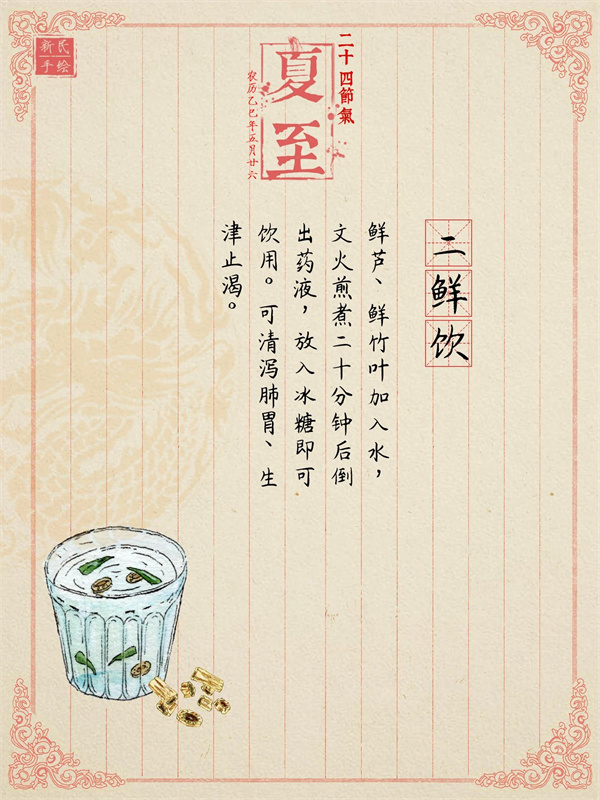 新民
手绘
二十四節氣
夏至
农历乙巳年五月廿六
二鲜饮
鲜芦、鲜竹叶加入水，
文火煎煮二十分钟后倒
出药液，放入冰糖即可
饮用。可清泻肺胃、生
津止渴。